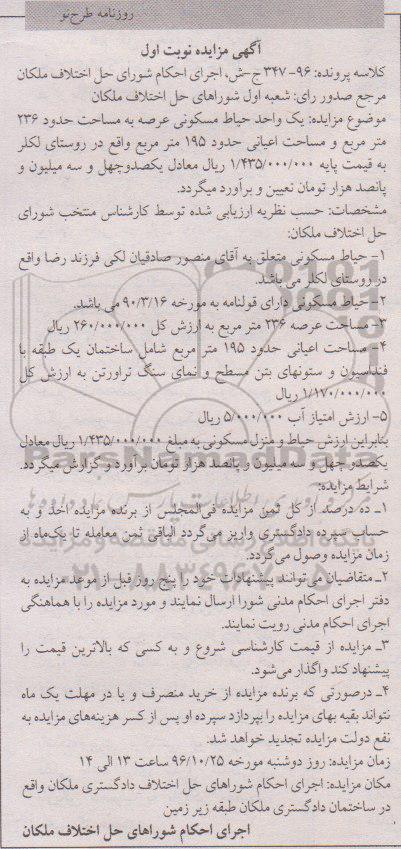 روزنامه طرح‌نو
آگهی مزایده نوبت اول
کلاسه پرونده: ۹۶-۳۴۷ج-ش، اجرای احکام شورای حل اختلاف ملکان
مرجع صدور رای: شعبه اول شوراهای حل اختلاف ملکان
موضوع مزایده: یک واحد حیاط مسکونی عرصه به مساحت حدود ۲۳۶
متر مربع و مساحت اعیانی حدود ۱۹۵ متر مربع واقع در روستای لکلر
به قیمت پایه ۱/۴۳۵/۰۰۰/۰۰۰ ریال معادل یکصدوچهل و سه میلیون و
پانصد هزار تومان تعیین و برآورد میگردد.
مشخصات: حسب نظریه ارزیابی شده توسط کارشناس منتخب شورای
حل اختلاف ملکان:
۱- حیاط مسکونی متعلق به آقای منصور صادقیان لکی فرزند رضا واقع
در روستای لکلر می باشد.
۲- حیاط مسکونی دارای قولنامه به مورخه ۹۰/۳/۱۶ می باشد.
۳- مساحت عرصه ۲۳۶ متر مربع به ارزش کل ۲۶۰/۰۰۰/۰۰۰ ریال
۴- مساحت اعیانی حدود ۱۹۵ متر مربع شامل ساختمان یک طبقه با
فنداسیون و ستونهای بتن مسطح و نمای سنگ تراورتن به ارزش کل
۱/۱۷۰/۰۰۰/۰۰۰ ریال
۵- ارزش امتیاز آب ۵/۰۰۰/۰۰۰ ریال
بنابراین ارزش حیاط و منزل مسکونی به مبلغ ۱/۴۳۵/۰۰۰/۰۰۰ ریال معادل
یکصدر چهل و سه میلیون و پانصد هزار تومان برآورد و گزارش میگردد.
شرایط مزایده:
۱- ده درصد از کل ثمن مزایده فی‌المجلس از برنده مزایده اخذ و به
حساب سپرده دادگستری واریز می‌گردد الباقی ثمن معامله تا یک‌ماه از
زمان مزایده وصول می‌گردد.
۲- متقاضیان می‌توانند پیشنهادات خود را پنج روز قبل از موعد مزایده به
دفتر اجرای احکام مدنی شورا ارسال نمایند و مورد مزایده را با هماهنگی
اجرای احکام مدنی رویت نمایند.
۳- مزایده از قیمت کارشناسی شروع و به کسی که بالاترین قیمت را
پیشنهاد کند واگذار می‌شود.
۴- درصورتی که برنده مزایده از خرید منصرف و یا در مهلت یک ماه
نتواند بقیه بهای مزایده را بپردازد سپرده او پس از کسر هزینه‌های مزایده به
نفع دولت مزایده تجدید خواهد شد.
زمان مزایده: روز دوشنبه مورخه ۹۶/۱۰/۲۵ ساعت ۱۳ الی ۱۴
مکان مزایده: اجرای احکام شوراهای حل اختلاف دادگستری ملکان واقع
در ساختمان دادگستری ملکان طبقه زیر زمین
اجرای احکام شوراهای حل اختلاف ملکان
ParsNamadData
۰۲۱-۸۸۳۴۹۶۷۰-۵